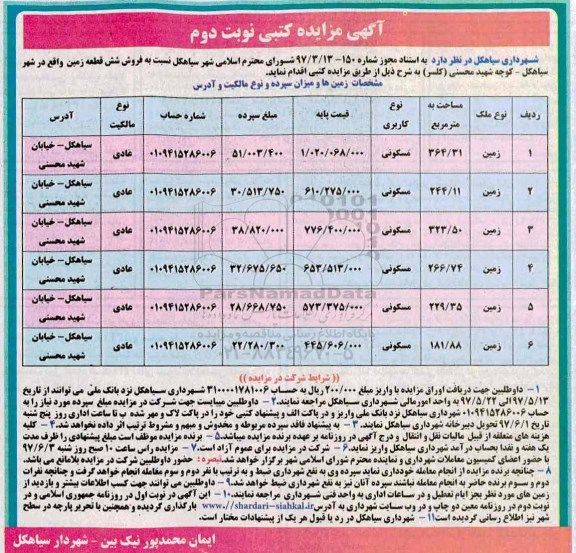 آگهی مزایده کتبی نوبت دوم
شهرداری سیاهکل در نظر دارد به استناد مجوز شماره ۱۵۰- ۹۷/۳/۱۳ شورای محترم اسلامی شهر سیاهکل نسبت به فروش شش قطعه زمین واقع در شهر
سیاهکل - کوچه شهید محسنی (کلسر) به شرح ذیل از طریق مزایده کتبی اقدام نماید.
مشخصات زمین ها و میزان سپرده و نوع مالکیت و آدرس
ردیف نوع ملک مساحت به مترمربع نوع کاربری قیمت پایه مبلغ سپرده شماره حساب نوع مالکیت آدرس
۱ زمین ۳۶۴/۳۱ مسکونی ۱/۰۲۰/۰۶۸/۰۰۰ ۵۱/۰۰۳/۴۰۰ ۰۱۰۹۴۱۵۲۸۶۰۰۶ عادی سیاهکل- خیابان شهید محسنی
۲ زمین ۲۴۴/۱۱ مسکونی ۶۱۰/۲۷۵/۰۰۰ ۳۰/۵۱۳/۷۵۰ ۰۱۰۹۴۱۵۲۸۶۰۰۶ عادی سیاهکل- خیابان شهید محسنی
۳ زمین ۳۲۳/۵۰ مسکونی ۷۷۶/۴۰۰/۰۰۰ ۳۸/۸۲۰/۰۰۰ ۰۱۰۹۴۱۵۲۸۶۰۰۶ عادی سیاهکل- خیابان شهید محسنی
۴ زمین ۲۶۶/۷۴ مسکونی ۶۵۳/۵۱۳/۰۰۰ ۳۲/۶۷۵/۶۵۰ ۰۱۰۹۴۱۵۲۸۶۰۰۶ عادی سیاهکل- خیابان شهید محسنی
۵ زمین ۲۲۹/۳۵ مسکونی ۵۷۳/۳۷۵/۰۰۰ ۲۸/۶۶۸/۷۵۰ ۰۱۰۹۴۱۵۲۸۶۰۰۶ عادی سیاهکل- خیابان شهید محسنی
۶ زمین ۱۸۱/۸۸ مسکونی ۴۴۵/۶۰۶/۰۰۰ ۲۲/۲۸۰/۳۰۰ ۰۱۰۹۴۱۵۲۸۶۰۰۶ عادی سیاهکل- خیابان شهید محسنی
ParsNamadData
پایگاه اطلاع رسانی مناقصه و مزایده
۰۲۱-۸۸۳۴۹۶۷۰-۵
(( شرایط شرکت در مزایده ))
۱- داوطلبین جهت دریافت اوراق مزایده با واریز مبلغ ۲۰۰/۰۰۰ ریال به حساب ۳۱۰۰۰۰۱۷۸۱۰۰۶ شهرداری سیاهکل نزد بانک ملی می توانند از تاریخ
۹۷/۵/۱۳ الی ۹۷/۵/۲۲ به واحد امورمالی شهرداری سیاهکل مراجعه نمایند. ۲- داوطلبین میبایست جهت شرکت در مزایده مبلغ سپرده مورد نیاز را به
حساب ۰۱۰۹۴۱۵۲۸۶۰۰۶ شهرداری سیاهکل نزد بانک ملی واریز و در پاکت الف و پیشنهاد کتبی خود را در پاکت لاک و مهر شده ب تا ساعت اداری روز پنج شنبه
تاریخ ۹۷/۶/۱ تحویل دبیرخانه شهرداری سیاهکل نمایند. ۳- به پیشنهاد فاقد سپرده مربوطه و مخدوش و مبهم و مشروط ترتیب اثر داده نخواهد شد. ۴- کلیه
هزینه های متعلقه از قبیل مالیات نقل و انتقال و درج آگهی در روزنامه بر عهده برنده مزایده میباشد. ۵- برنده مزایده موظف است مبلغ پیشنهادی را ظرف مدت
یک هفته و نقدا بحساب درآمد شهرداری سیاهکل واریز نماید. ۶- شرکت در مزایده برای عموم آزاد است. ۷- مزایده راس ساعت ۱۰ صبح روز شنبه ۹۷/۶/۳
با حضور اعضای کمیسیون معاملات شهرداری و نماینده محترم شورای اسلامی شهر برگزار خواهد شد. تبصره: حضور داوطلبین شرکت در مزایده بلامانع می باشد.
۸- چنانچه برنده مزایده از انجام معامله خودداری نماید سپرده وی به نفع شهرداری ضبط و به ترتیب با نفر دوم و سوم معامله انجام خواهد گرفت و چنانچه نفرات
دوم و سوم برنده حاضر به انجام معامله نباشند سپرده آنان نیز به نفع شهرداری ضبط خواهد شد. ۹- داوطلبین می توانند جهت کسب اطلاعات بیشتر و بازدید از
زمین های مورد نظر بجز ایام تعطیل و در ساعات اداری به واحد فنی شهرداری مراجعه نمایند. ۱۰- این آگهی در نوبت اول در روزنامه جمهوری اسلامی و در
نوبت دوم در روزنامه معین دو چاپ و در وب سایت شهرداری به آدرس www.//shardari-siahkal.ir بارگذاری گردیده و همچنین با تحریر پارچه در سطح
شهر نیز اطلاع رسانی گردیده است ۱۱- شهرداری سیاهکل در رد یا قبول هر یک از پیشنهادات مختار است.
ایمان محمدپور نیک بین - شهردار سیاهکل